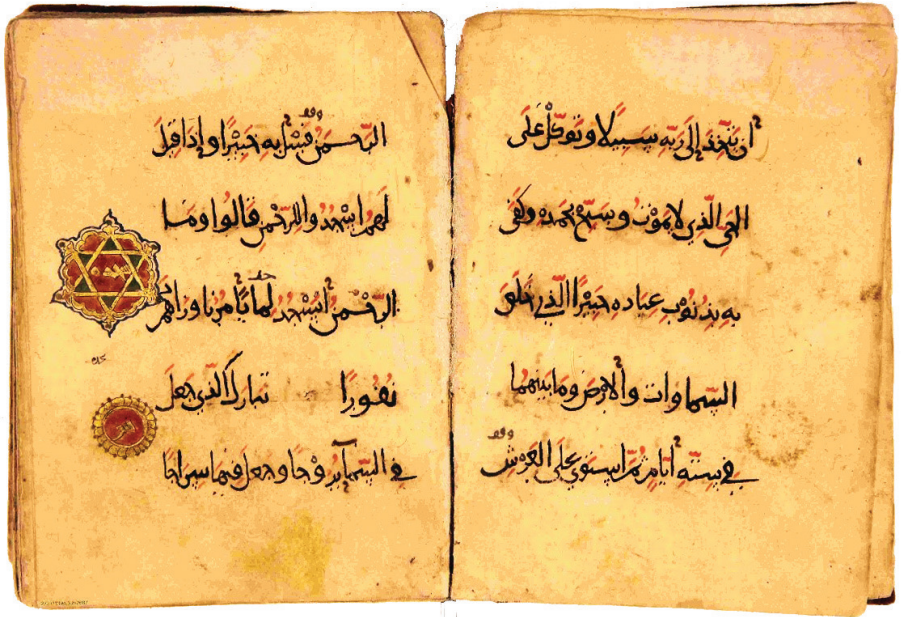 أَن يَتَّخِذَ إِلَى رَبِّهِ سَبِيلًا وَتَوَكَّلْ عَلَى
الْحَيِّ الَّذِي لَا يَمُوتُ وَسَبِّحْ بِحَمْدِهِ وَكَفَى
بِهِ بِذُنُوبِ عِبَادِهِ خَبِيرًا الَّذِي خَلَقَ
السَّمَاوَاتِ وَالْأَرْضَ وَمَا بَيْنَهُمَا
فِي سِتَّةِ أَيَّامٍ ثُمَّ اسْتَوَى عَلَى الْعَرْشِ
الرَّحْمَنُ فَسْئَلْ بِهِ خَبِيرًا وَإِذَا قِيلَ
لَهُمُ اسْجُدُوا لِلرَّحْمَنِ قَالُوا وَمَا
الرَّحْمَنُ أَنَسْجُدُ لِمَا تَأْمُرُنَا وَزَادَهُمْ
نُفُورًا تَبَارَكَ الَّذِي جَعَلَ
فِي السَّمَآءِ بُرُوجًا وَجَعَلَ فِيهَا سِرَاجًا